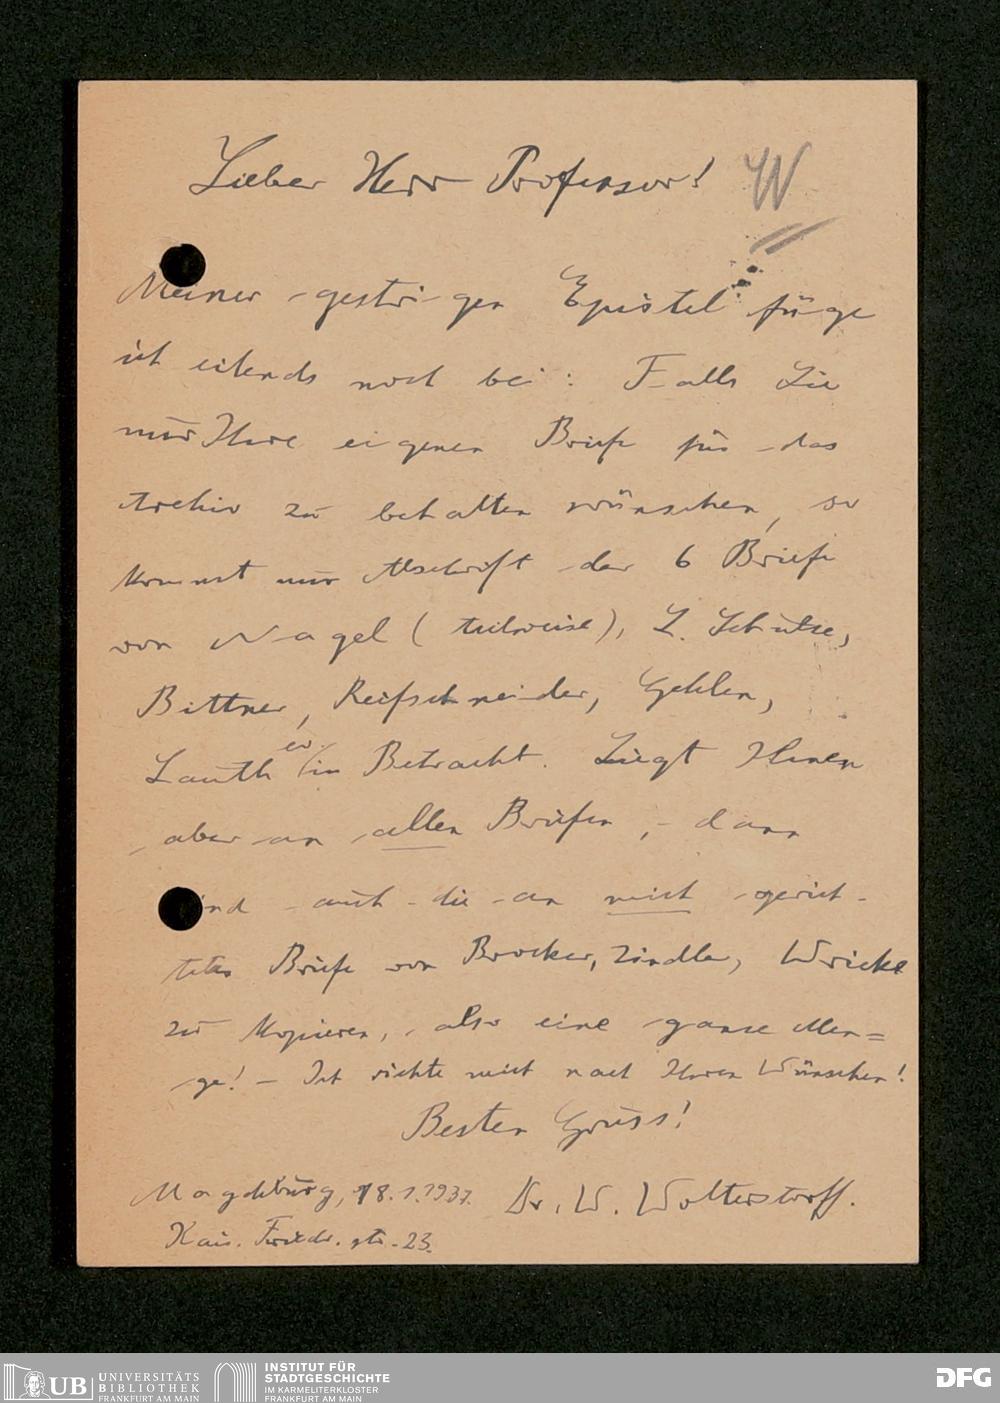 Lieber Herr Professor! W
Meiner gestrigen Epistel füge
ich eilends noch bei: Falls Sie
nur Ihre eigenen Briefe für das
Archiv zu behalten wünschen, so
kommt nur Abschrift der 6 Briefe
von Nagel (teilweise), L. Schulze,
Bittner, Reifschneider, Gehlen,
Lauth ev. in Betracht. Liegt Ihnen
aber an allen Briefen, dann
sind auch die an mich gerich-
teten Briefe von Brocker, Zindler, Wricke
zu kopieren, also eine ganze Men=
ge! – Ich richte mich nach Ihren Wünschen!
Besten Gruss!
Magdeburg, 18.1.1937. Dr. W. Wolterstorff.
Kais. Friedr. str. 23.
UB UNIVERSITÄTS
BIBLIOTHEK
FRANKFURT AM MAIN
INSTITUT FÜR
STADTGESCHICHTE
IM KARMELITERKLOSTER
FRANKFURT AM MAIN
DFG